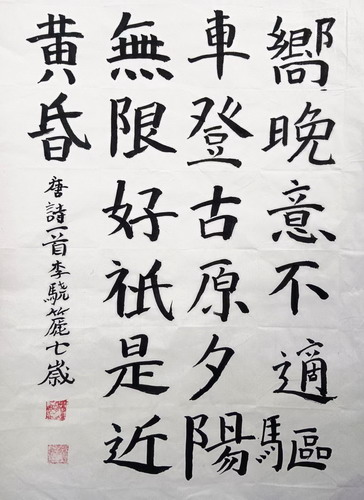 嚮晚意不適驅
車登古原夕陽
無限好祇是近
黄昏
唐詩一首李驍篪七歲